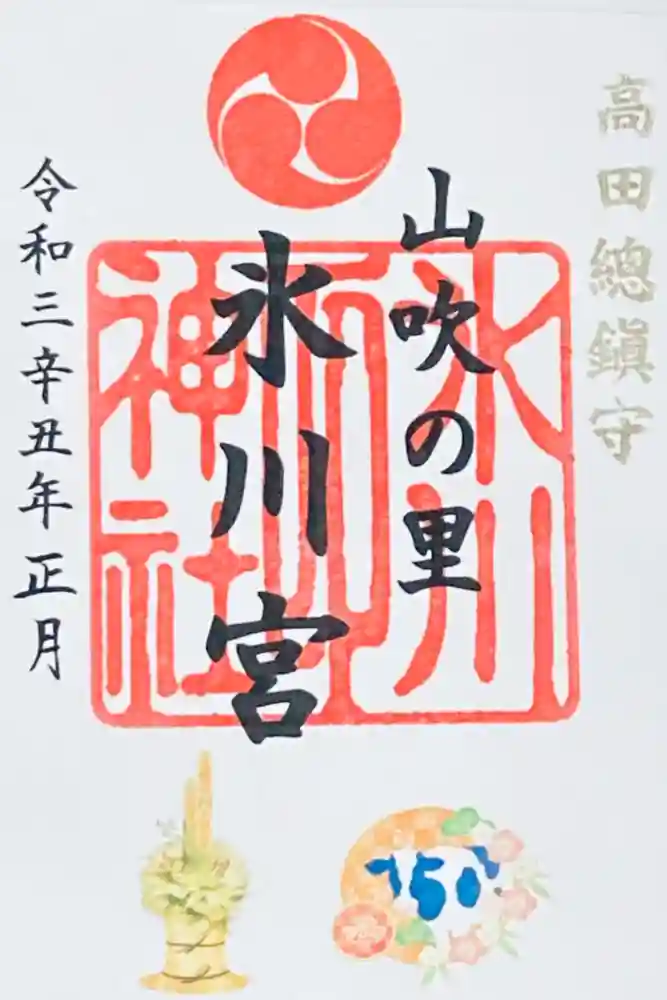 高田總鎭守
山吹の里
氷川宮
令和三辛丑年正月
氷川
神社